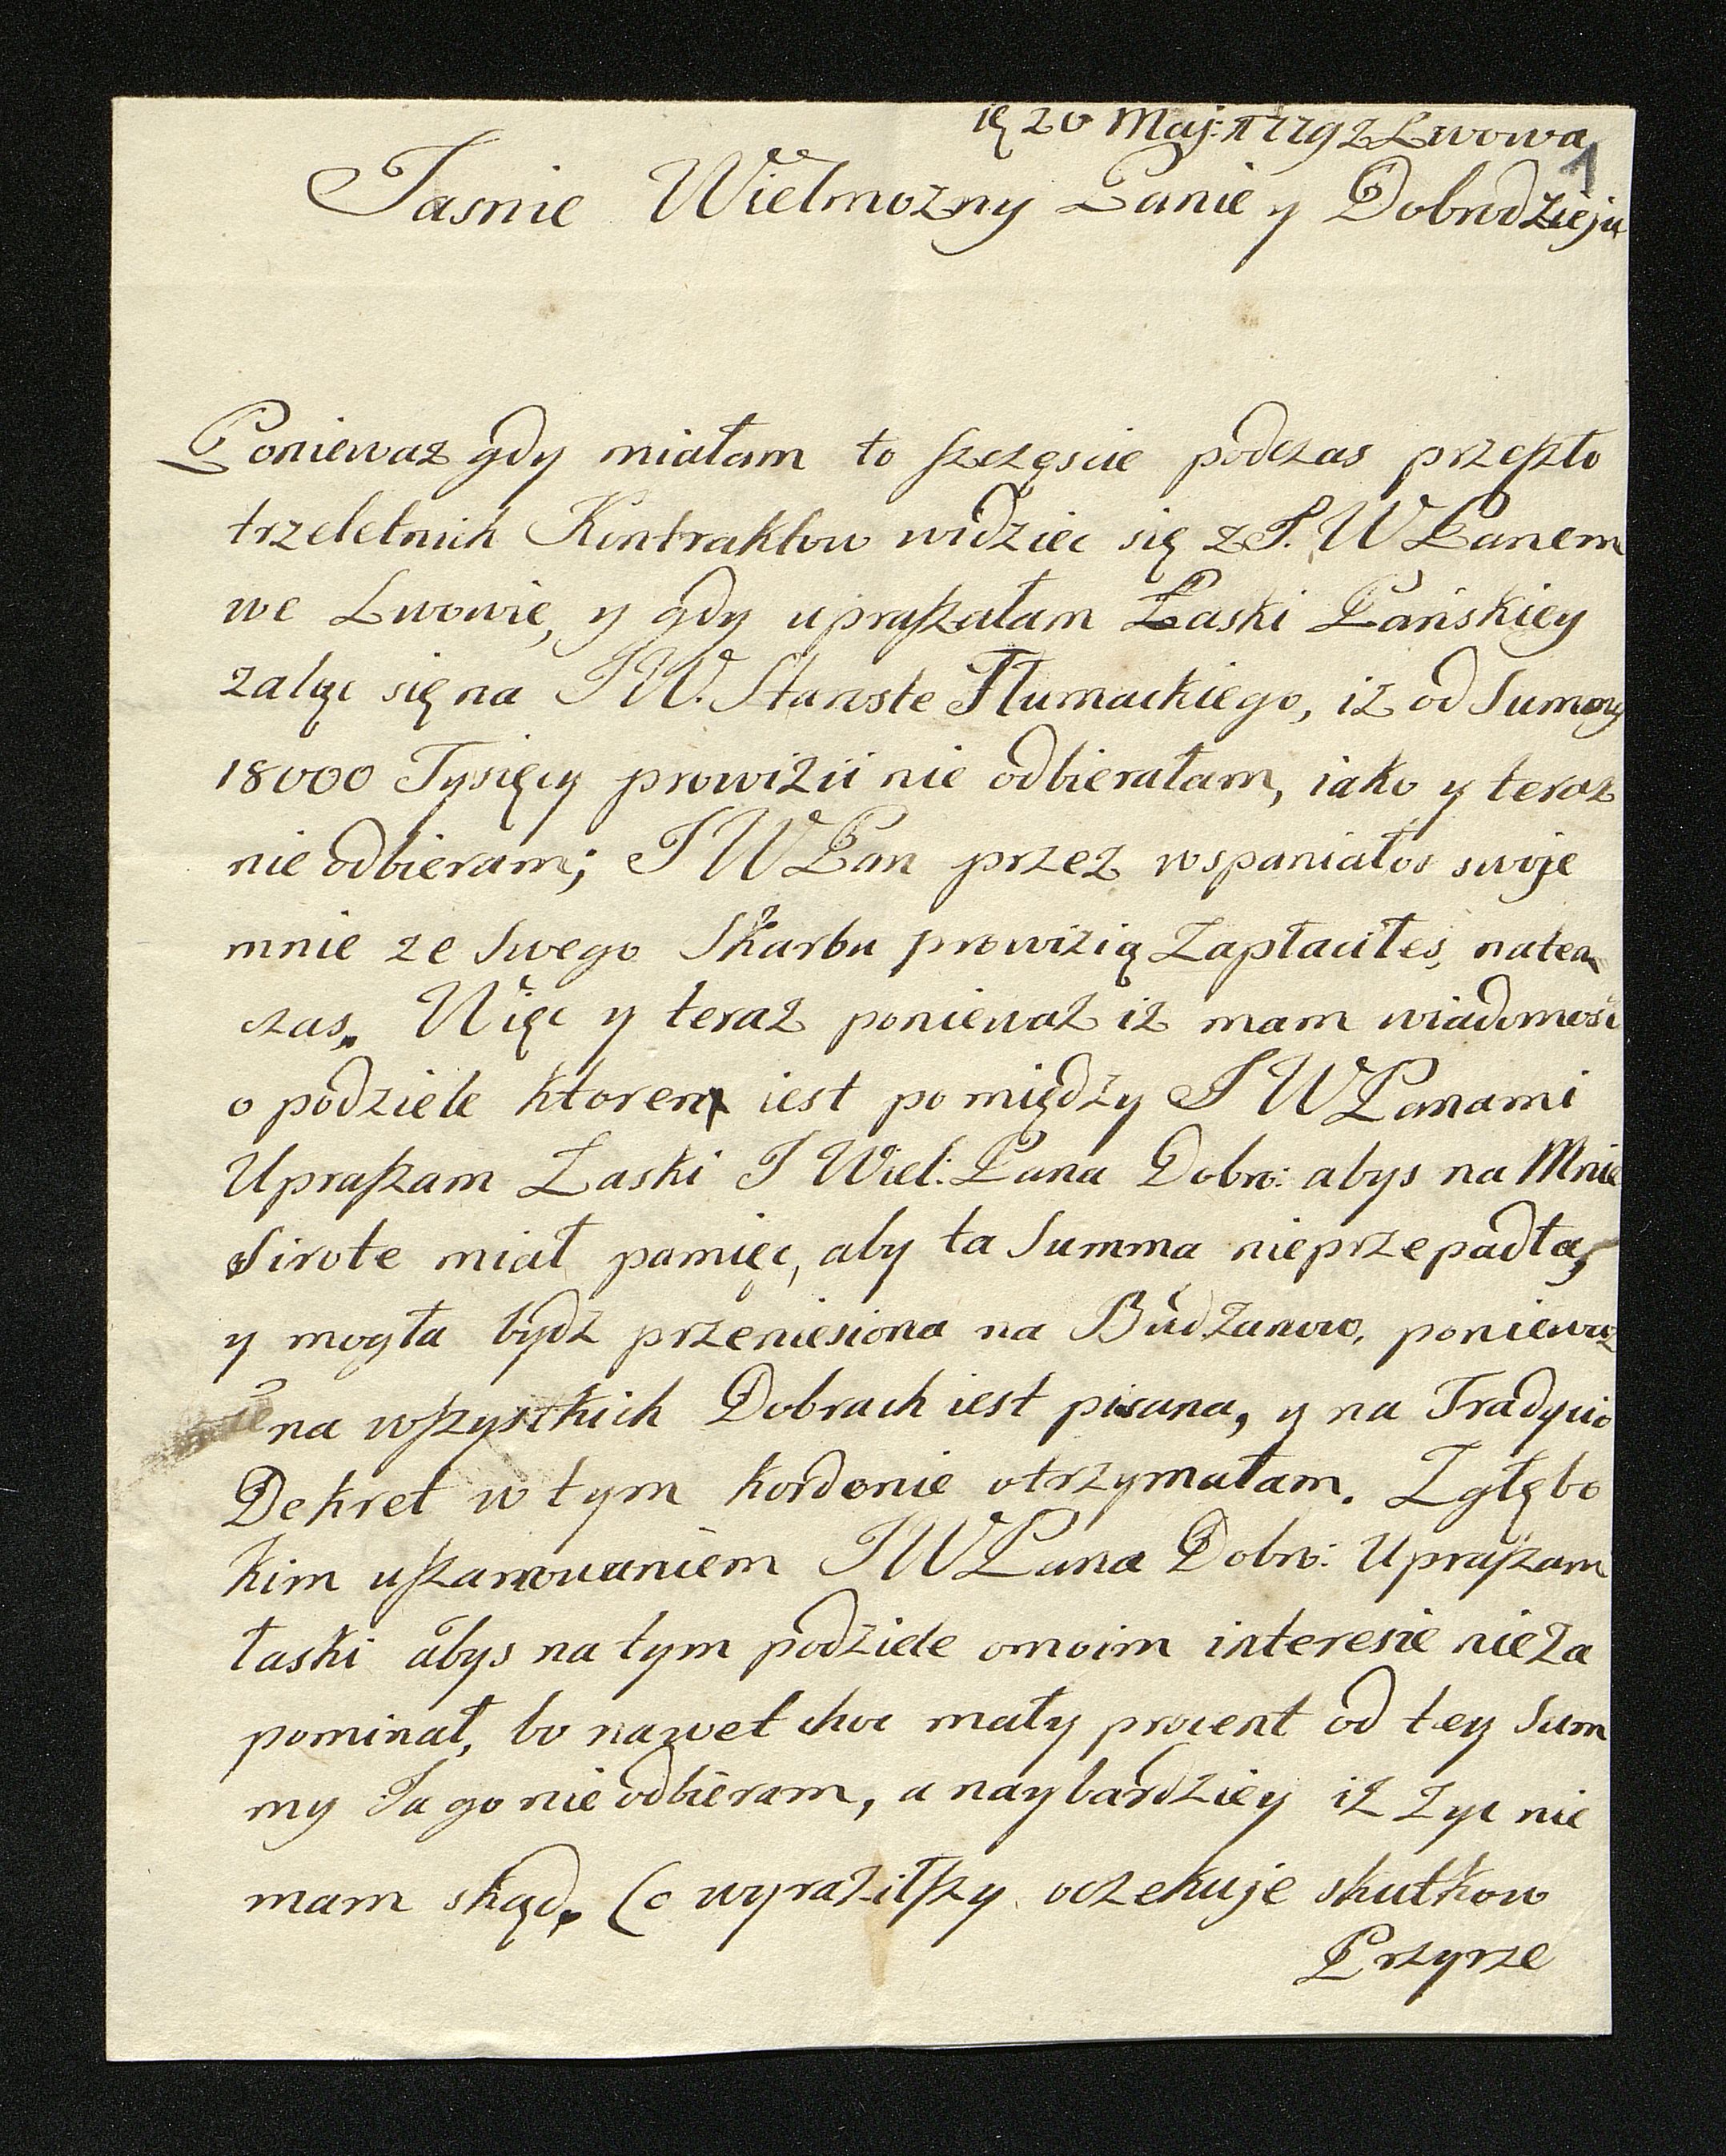 20 Maj: z Lwowa
1
Jasnie Wielmozny Panie y Dobrodzieju
Poniewaz gdy miałam to szczęscie podczas przeszło
trzeletnich Kontraktow widziec się z J. W Panem
we Lwowie, y gdy upraszałam Łaski Pańskiey
zaląc się na JW. Staroste Tłumackiego, iz od Summy
18000 Tysięcy prowizii nie odbierałam, iako y teraz
nie odbieram; J W Pan przez wspaniałos swoje
mnie ze swego Skarbu prowizią Zapłaciłes, naten
czas. Więc y teraz poniewaz iz mam wiadomosc
o podziele ktoren iest pomiędzy J W Panami
Upraszam Łaski J Wiel: Pana Dobro: abys na Mnie
Sirote miał pamięc, aby ta Summa nieprzepadła,
y mogła bydz przeniesiona na Budzanow, poniewaz
na wszystkich Dobrach iest pisana, y na Tradycio
Dekret w tym kordonie otrzymałam. Z głębo
kim uszanowaniem JW Pana Dobro: Upraszam
łaski abys na tym podziele omoim interesie nieza
pominał, bo nawet choc mały procent od tey Sum
my Ja go nie odbieram, a naybardziey iz zyc nie
mam skąd. Co wyraziłszy oczekuje skutkow
Przyrze